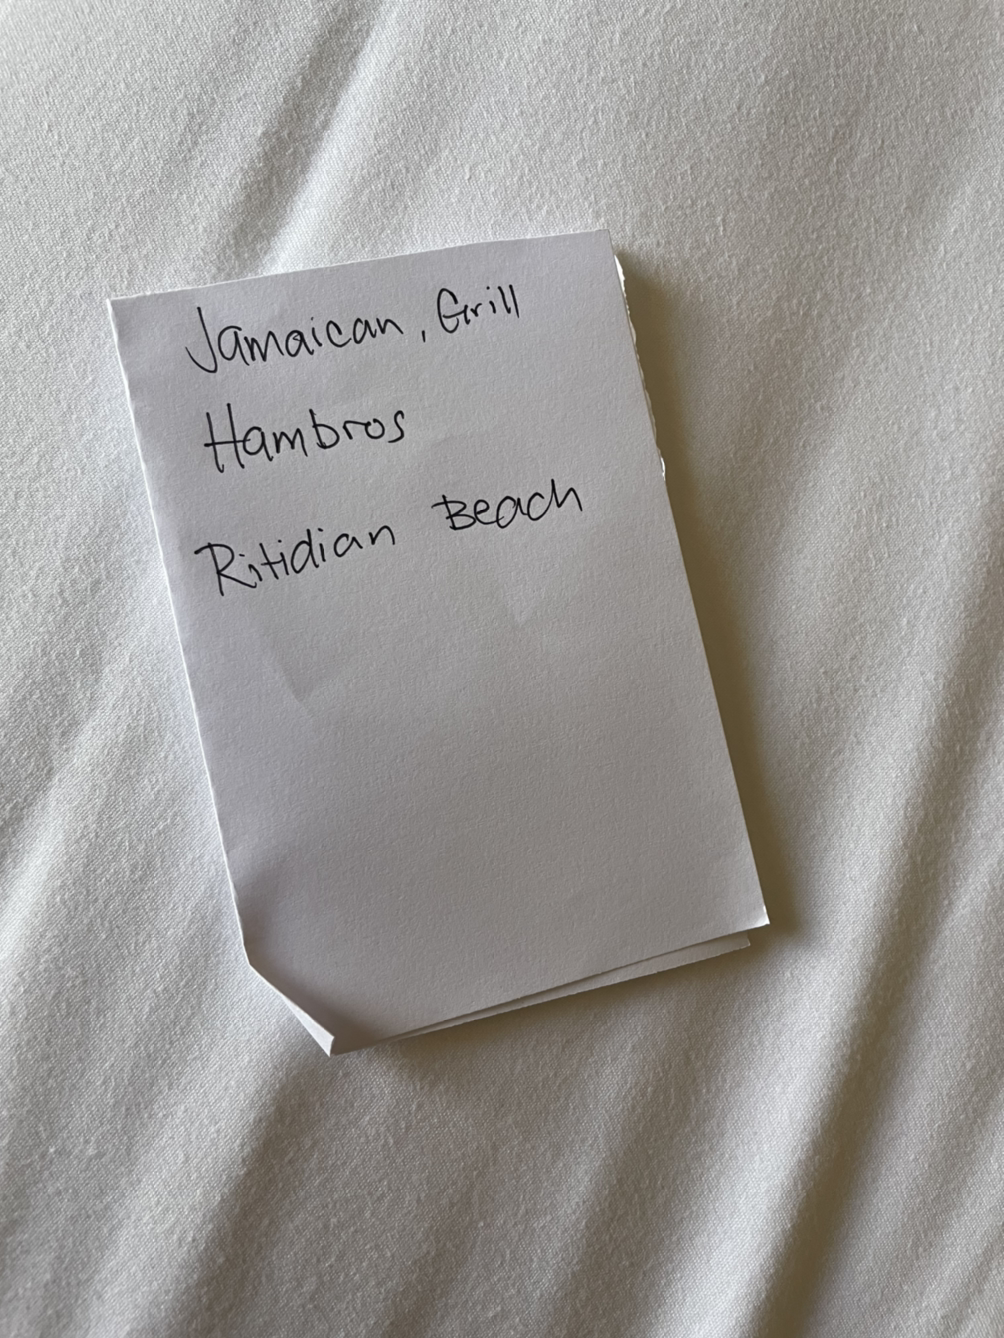 Jamaican, Grill
Hambros
Ritidian Beach